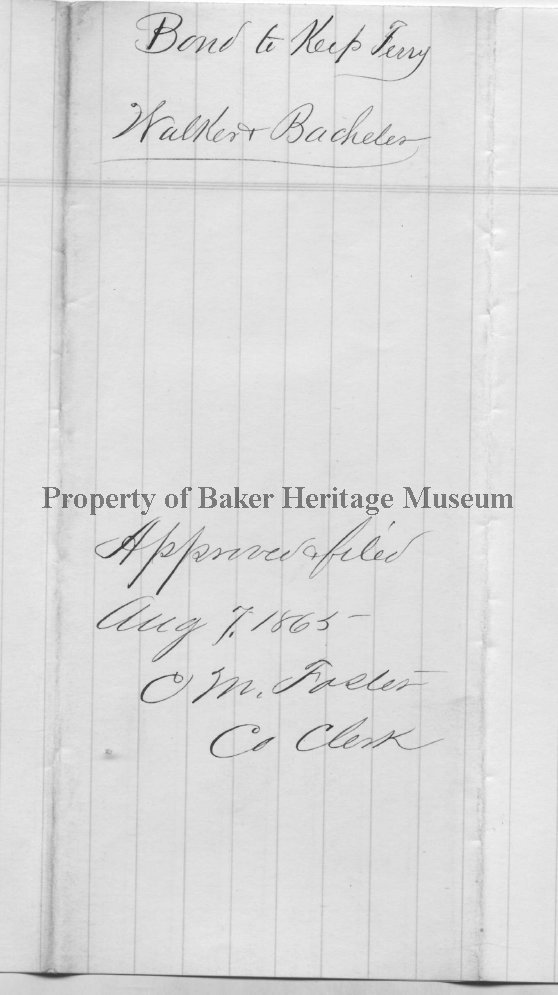 Bond to Keep Ferry
Walker & Bacheler
Property of Baker Heritage Museum
Approved & filed
Aug 7. 1865
M. Foster
Co Clerk